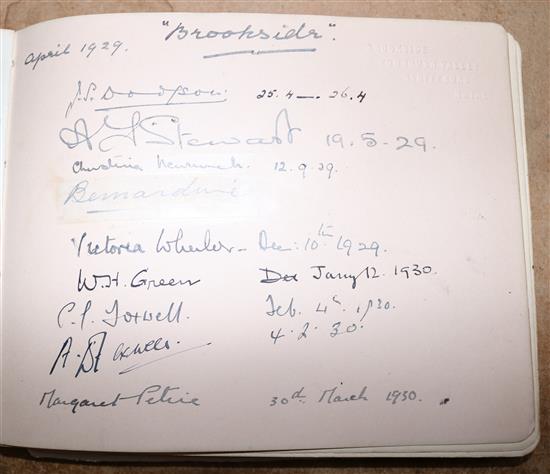 "Brookside".
April 1929.
BROOKSIDE
J.S. Dodgson. 25.4 — 26.4
A J Stewart 19.5-29.
Christina 12.9.29.
Bernardine
Victoria Wheeler - Dec: 10th 1929.
W.H. Green Dec Jany 12. 1930.
C. P. Foxwell. Feb. 4th. 1930.
A. D. Foxwell. 4.2.30.
Margaret Petrie 30th March 1930.